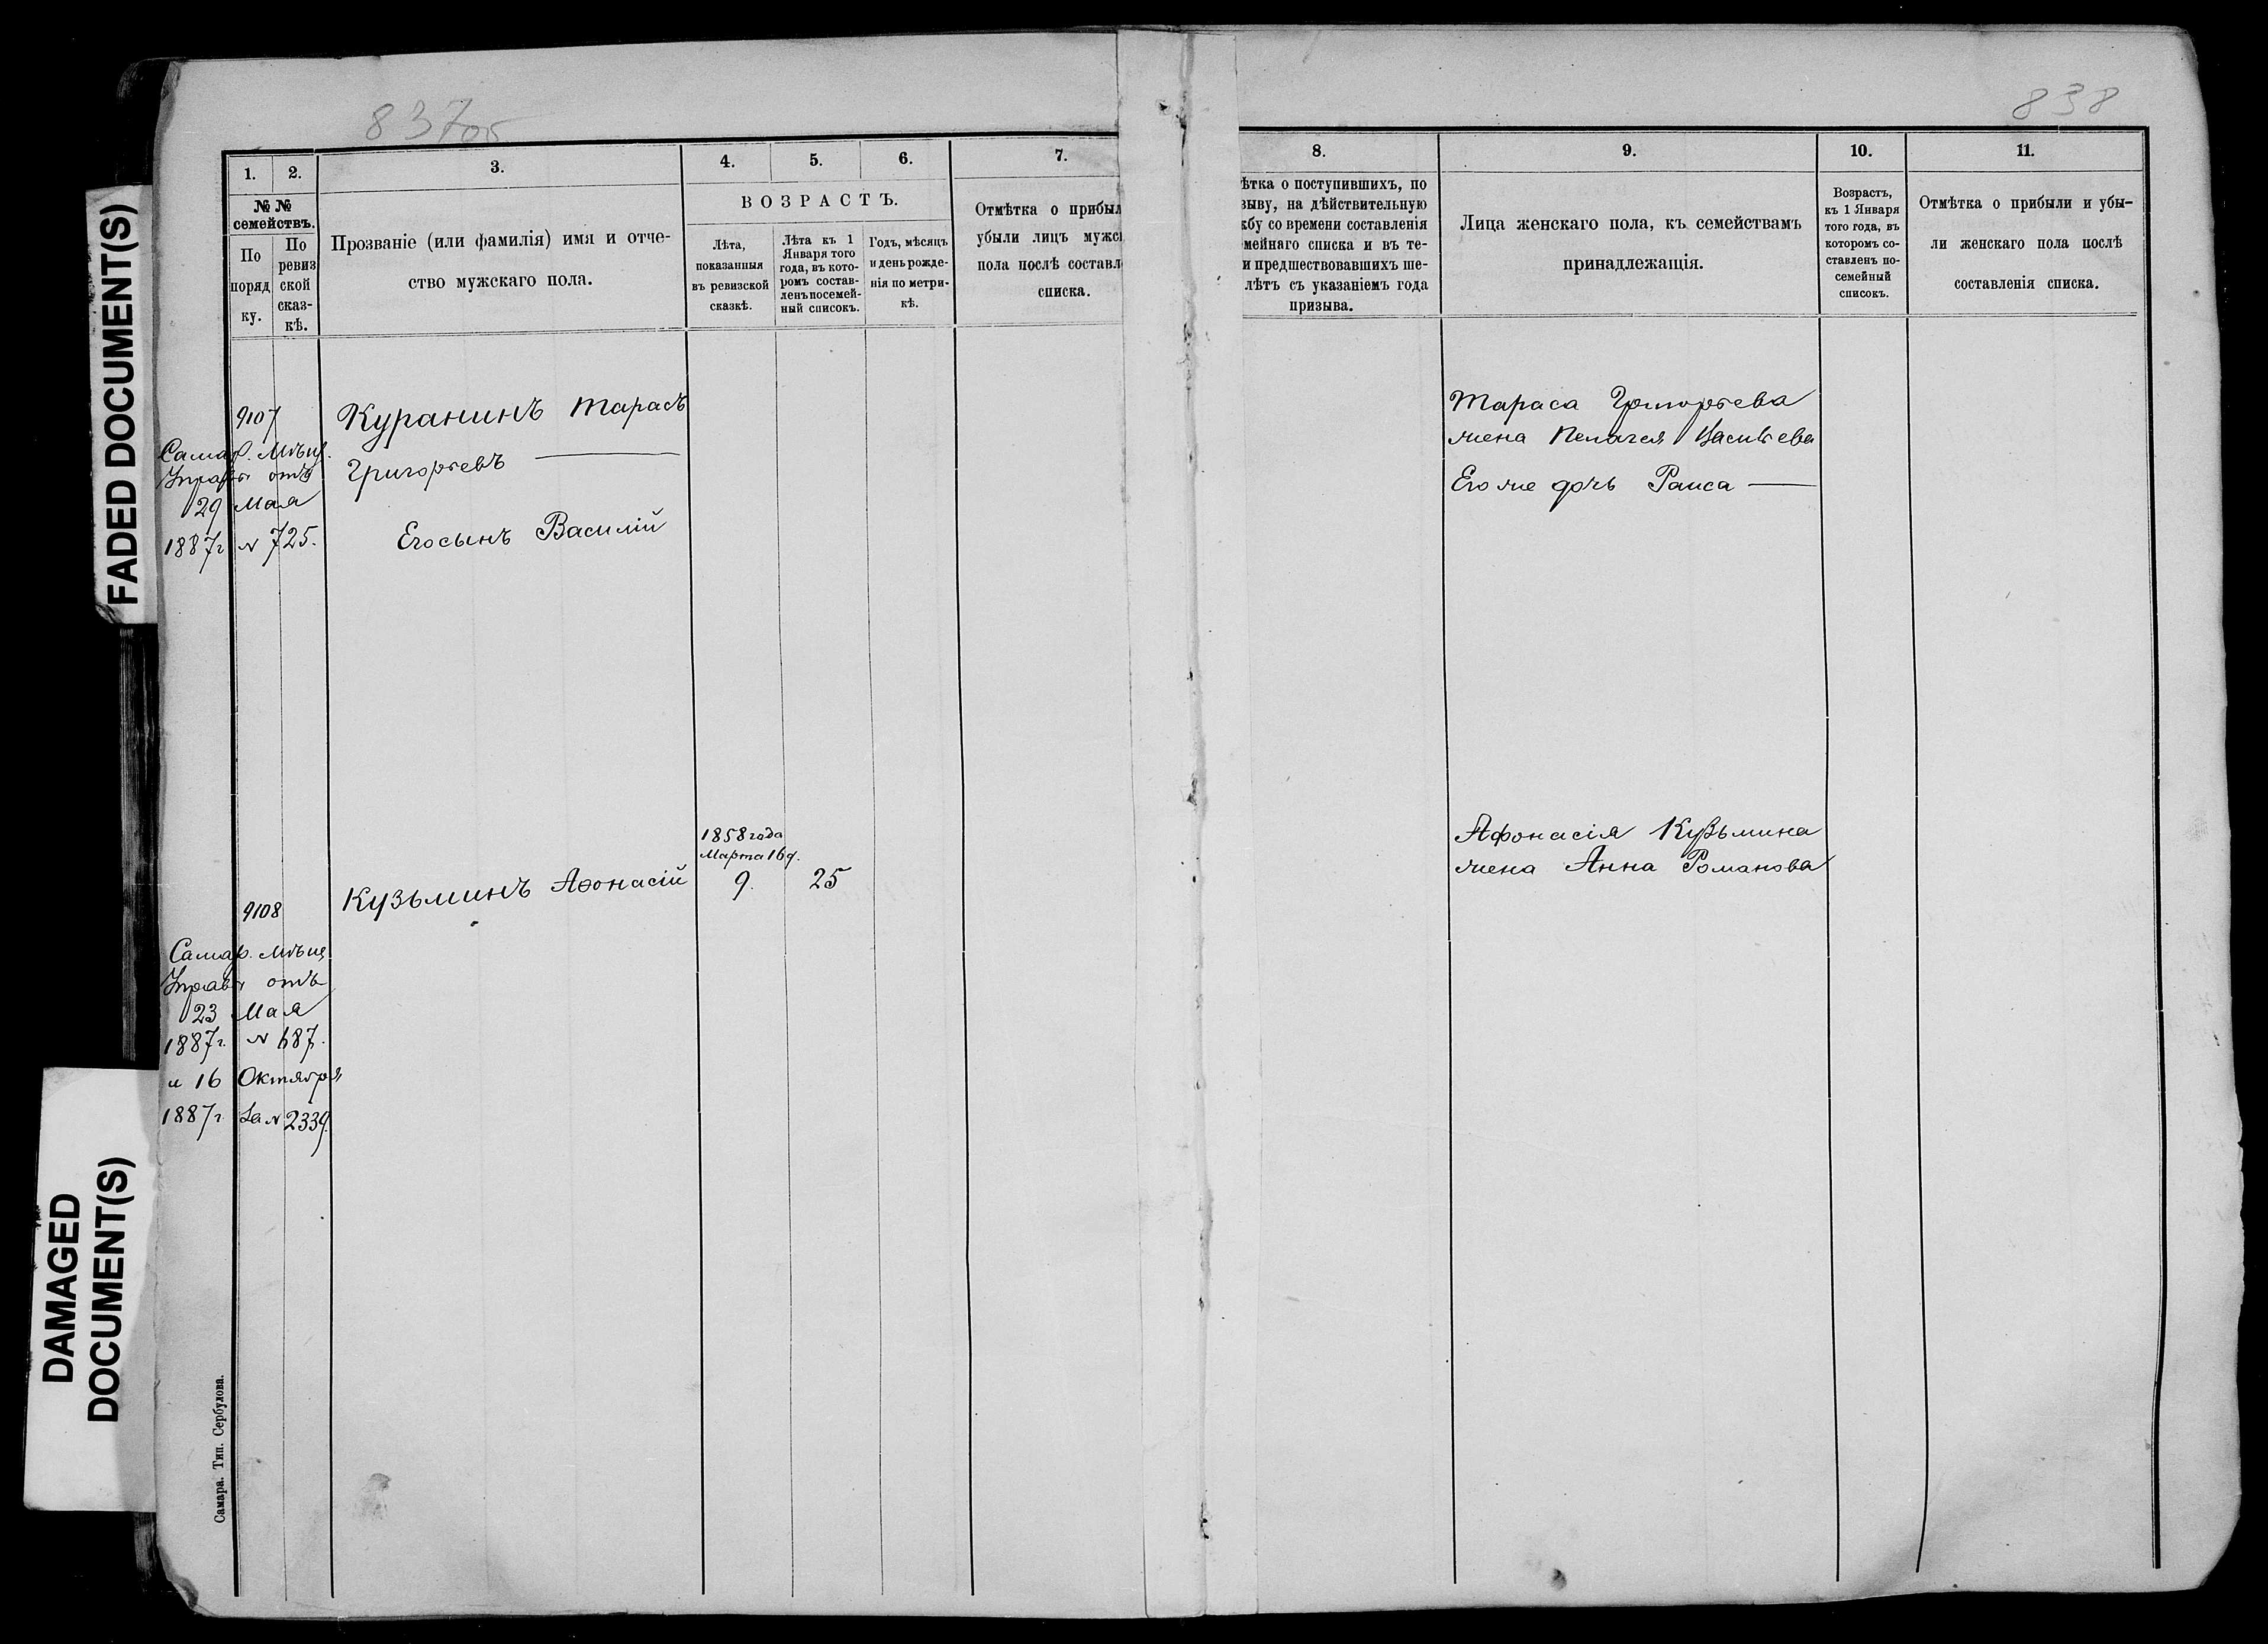 837об
838
1.
2.
3.
4.
5.
6.
7.
8.
9.
10.
11.
№ №
семействъ.
По
поряд
ку.
По
ревиз
ской
сказ-
кѣ.
Прозваніе (или фамилія) имя и отче-
ство мужскаго пола.
ВОЗРАСТЪ.
Лѣта,
показанныя
въ ревизской
сказкѣ.
Лѣта къ 1
Января того
года, въ кото-
ромъ состав-
ленъ посемей-
ный списокъ.
Годъ, мѣсяцъ
и день рожде-
нія по метри-
кѣ.
Отмѣтка о прибыл
убыли лицъ мужс
пола послѣ составл
списка.
ѣтка о поступившихъ, по
зыву, на дѣйствительную
жбу со времени составленія
мейнаго списка и въ те-
и предшествовавшихъ ше-
лѣтъ съ указаніемъ года
призыва.
Лица женскаго пола, къ семействамъ
принадлежащія.
Возрастъ,
къ 1 Января
того года, въ
которомъ со-
ставленъ по-
семейный
списокъ.
Отмѣтка о прибыли и убы-
ли женскаго пола послѣ
составленія списка.
9107
Самар. Мѣщ.
Управы отъ
29 Мая
1887г № 725.
Куранинъ Тарасъ
Григорьевъ
Его сынъ Василій
Тараса Григорьева
жена Пелагея Васильева
Его же дочь Раиса
9108
Самар. Мѣщ.
Управы отъ
23 Мая
1887г. № 687.
и 16 Октября
1887г за № 2339.
Кузьминъ Аѳонасій
1858 года
Марта 16 д.
9.
25
Афонасія Кузьмина
жена Анна Романова
Самара. Тип. Сербулова.
FADED DOCUMENT(S)
DAMAGED
DOCUMENT(S)